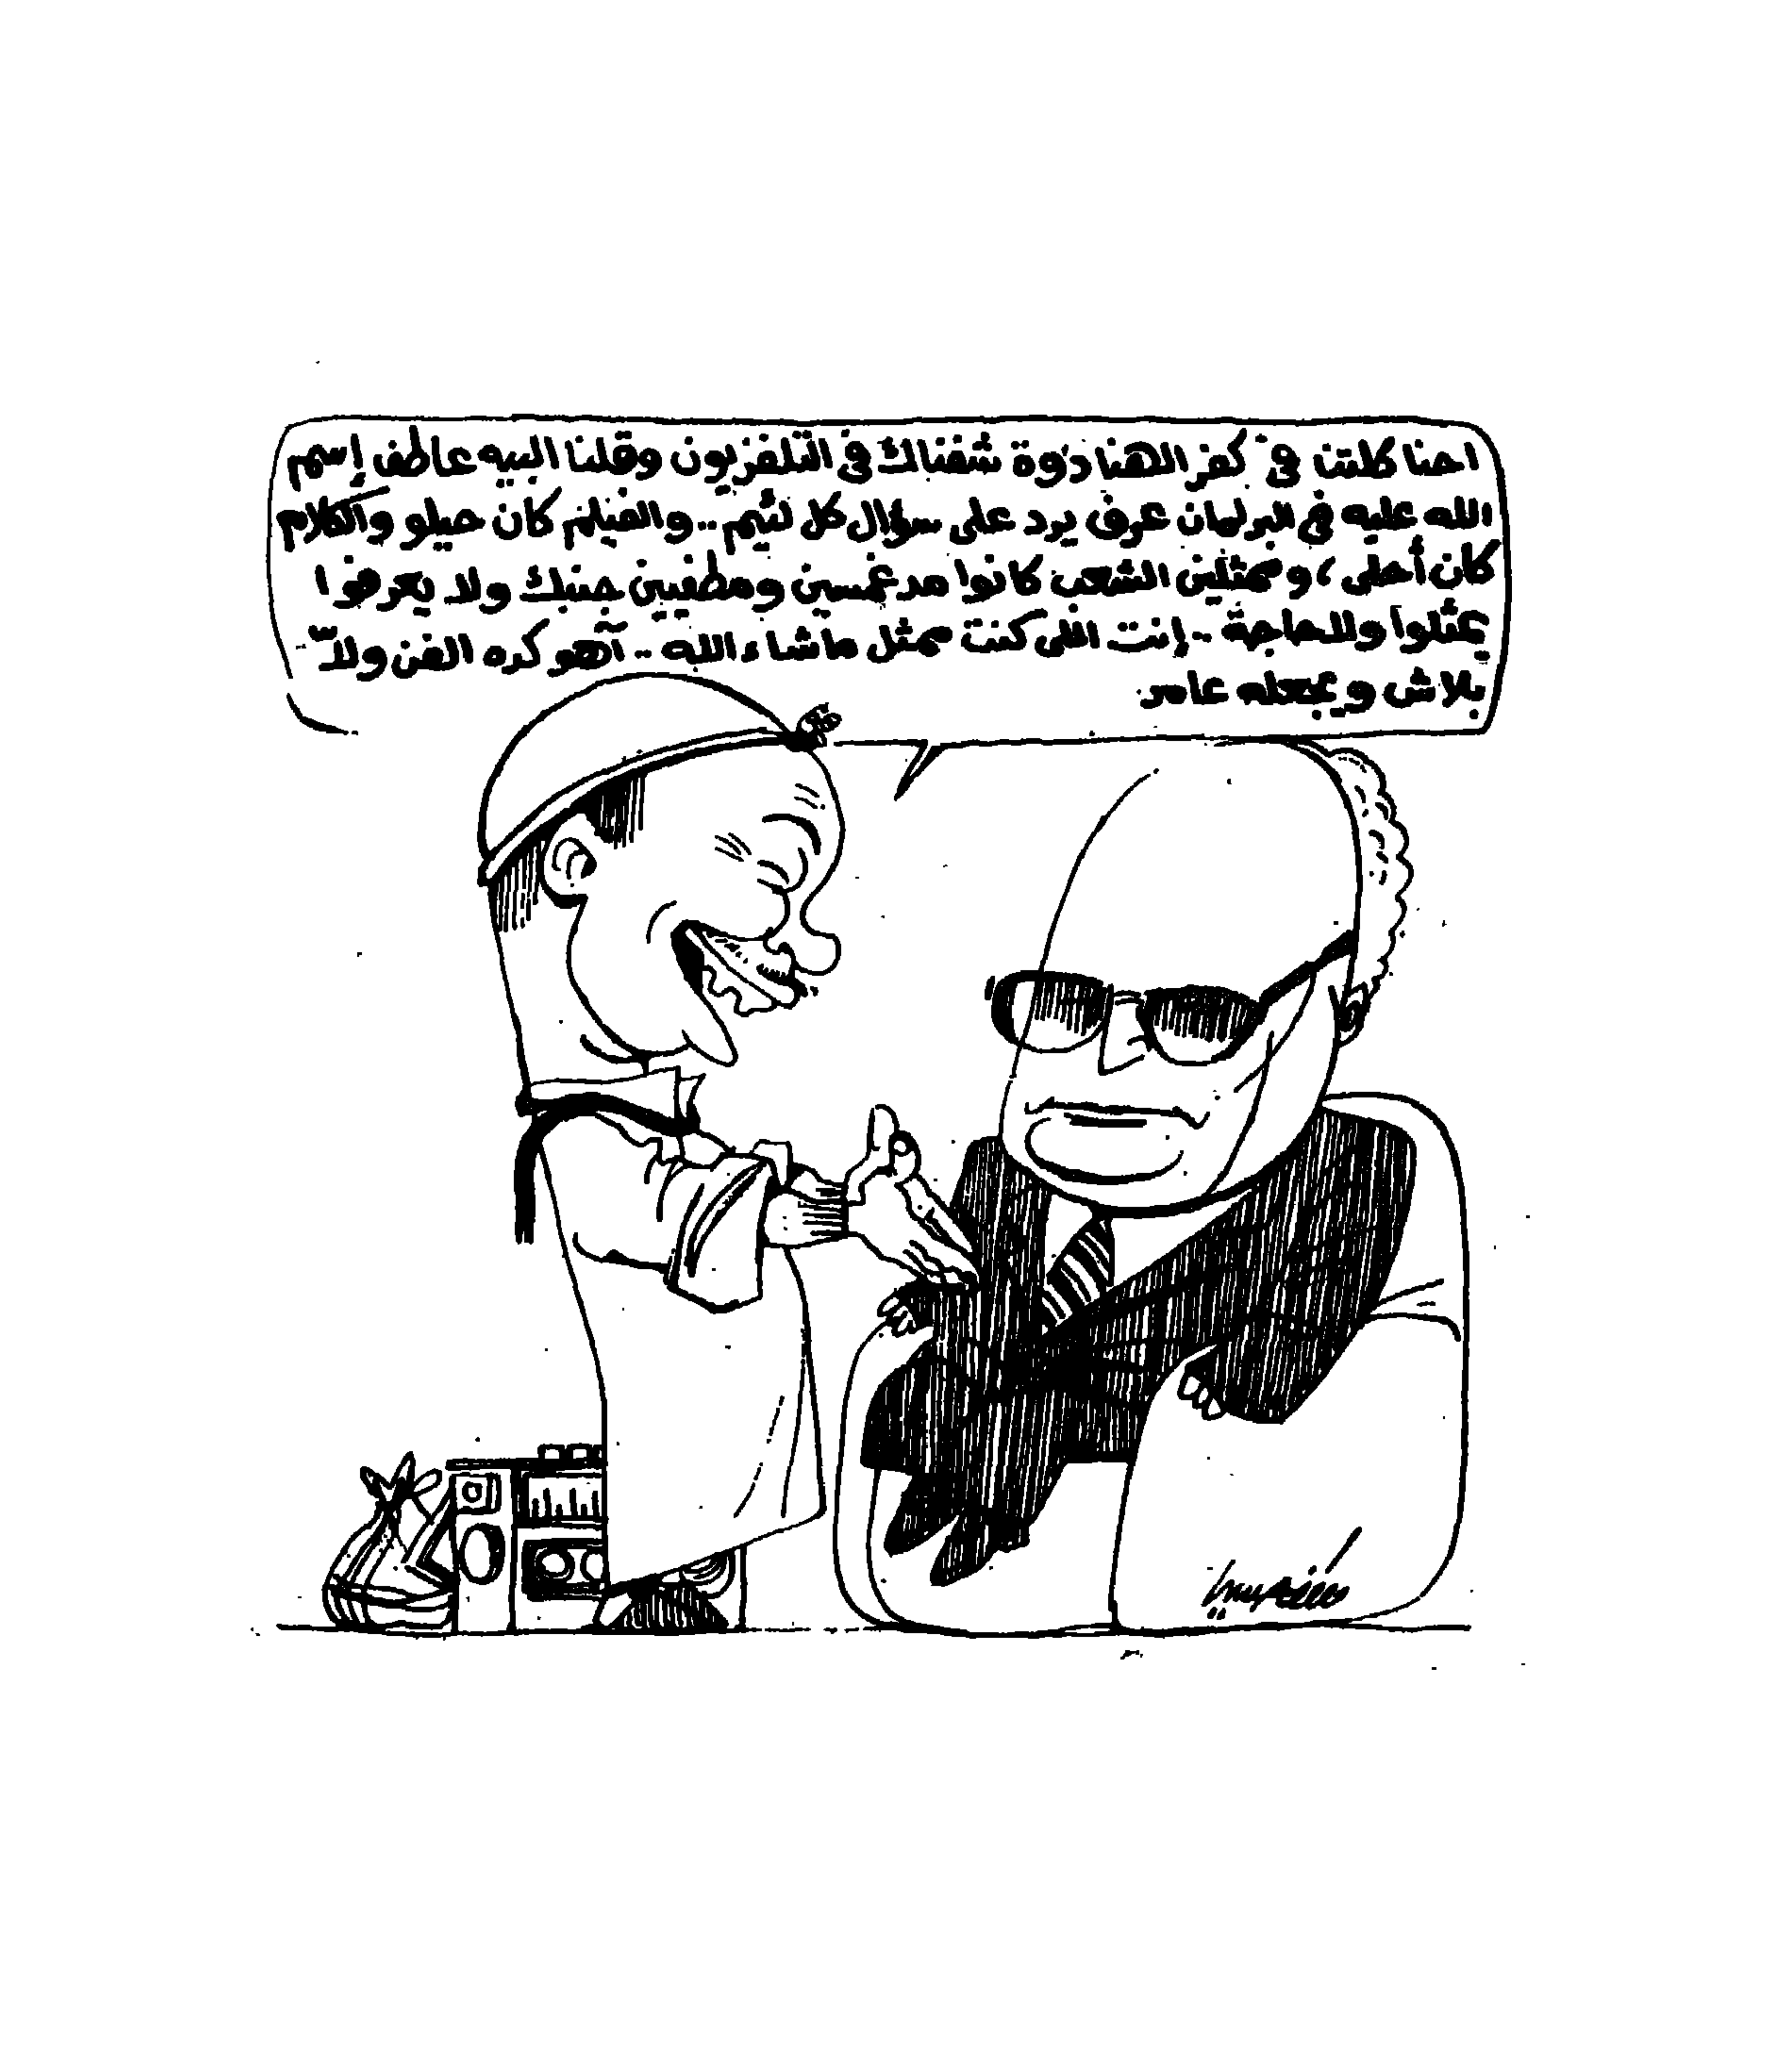 احنا كلتنا فى كفر الهنادوة شفناك فى التلفزيون وقلنا البيه عاطف إسم
الله عليه فى البرلمان عرف يرد على سؤال كل لئيم .. والفيلم كان حيلو والكلام
كان أحلى ، وممثلين الشعب كانوا مدغمسين ومطفيين جنبك ولا يعرفوا
يمثلوا ولا حاجة .. إنت اللى كنت ممثل ماشاء الله .. آهو كده الفن ولاّ
بلاش ويجعله عامر